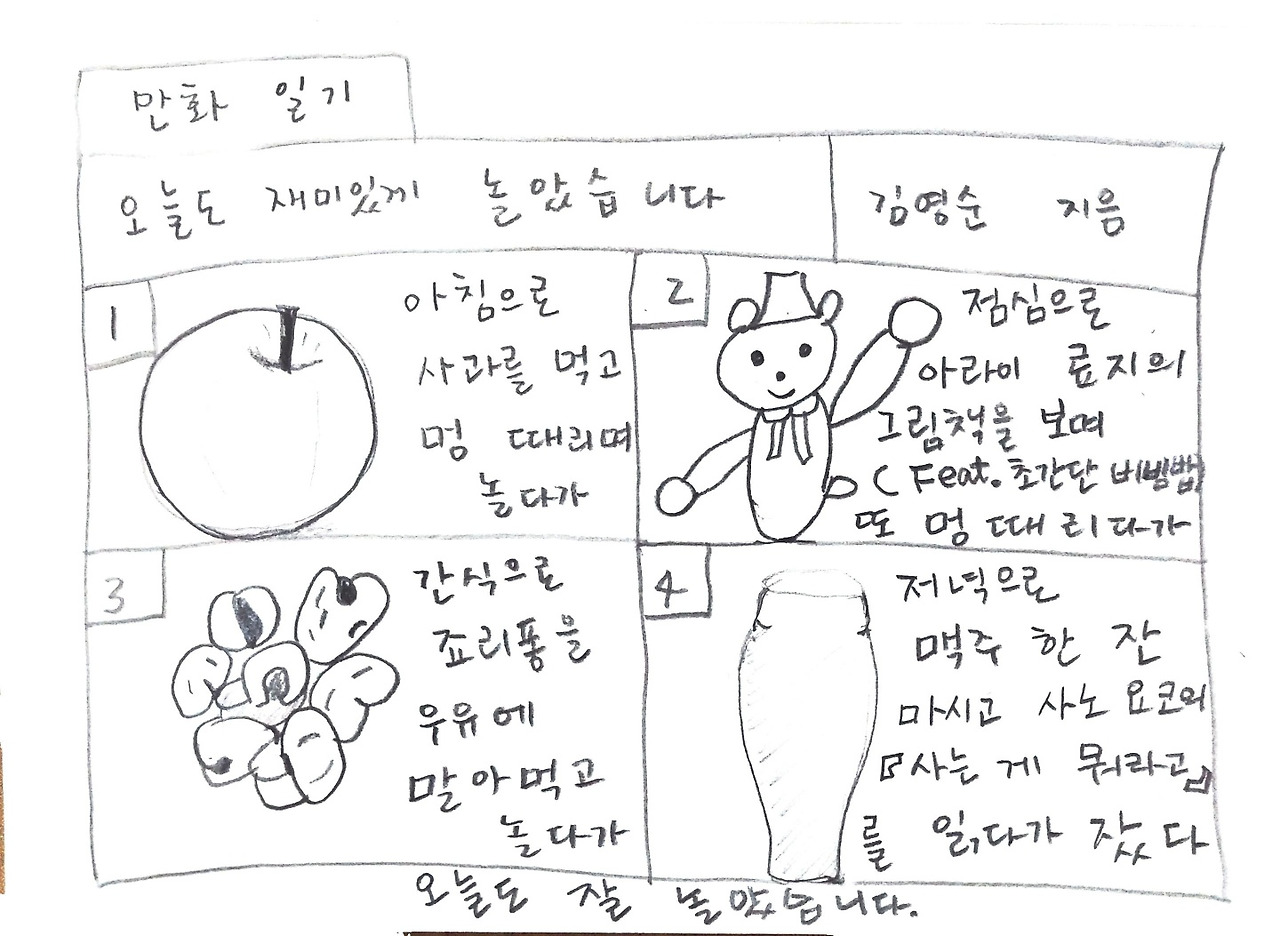 만화 일기
오늘도 재미있게 놀았습니다
김영순 지음
1
아침으로
사과를 먹고
멍 때리며
놀다가
2
점심으로
아라이 료지의
그림책을 보며
(Feat. 초간단 비빔밥)
또 멍 때리다가
3
간식으로
죠리퐁을
우유에
말아먹고
놀다가
4
저녁으로
맥주 한 잔
마시고 사노 요코의
『사는 게 뭐라고』
를 읽다가 잤다
오늘도 잘 놀았습니다.